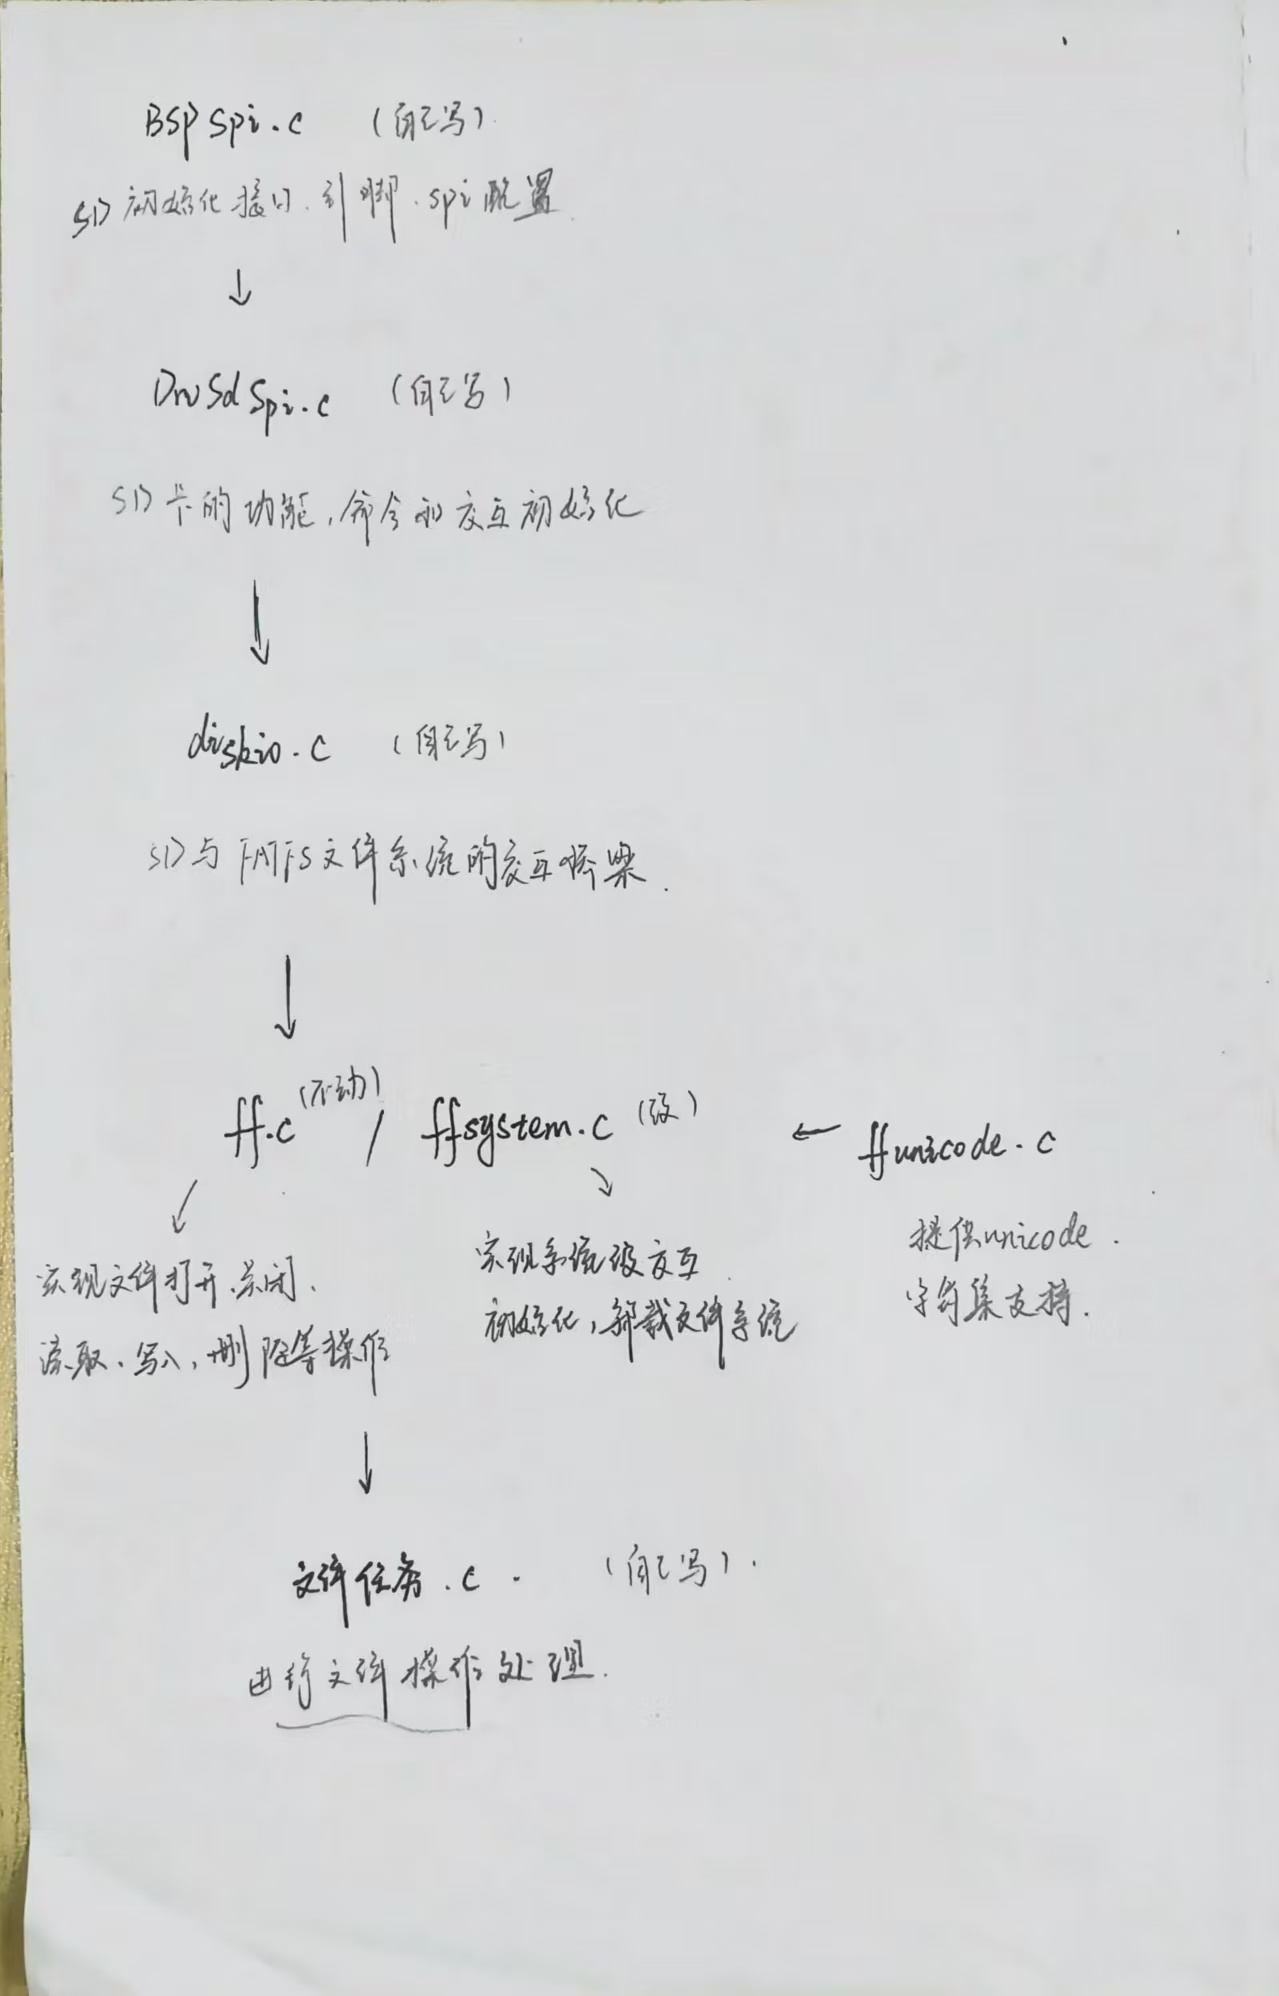 BSPSpi.c (自己写)
SD初始化接口、引脚、spi配置
DrvSdSpi.c (自己写)
SD卡的功能,命令和交互初始化
diskio.c (自己写)
SD与FATFS文件系统的交互桥梁.
ff.c (不动) / ffsystem.c (改) ← ffunicode.c
实现文件打开、关闭、
读取、写入、删除等操作
实现系统级交互
初始化,卸载文件系统
提供unicode.
字符集支持.
文件任务.c. (自己写).
进行文件操作处理.